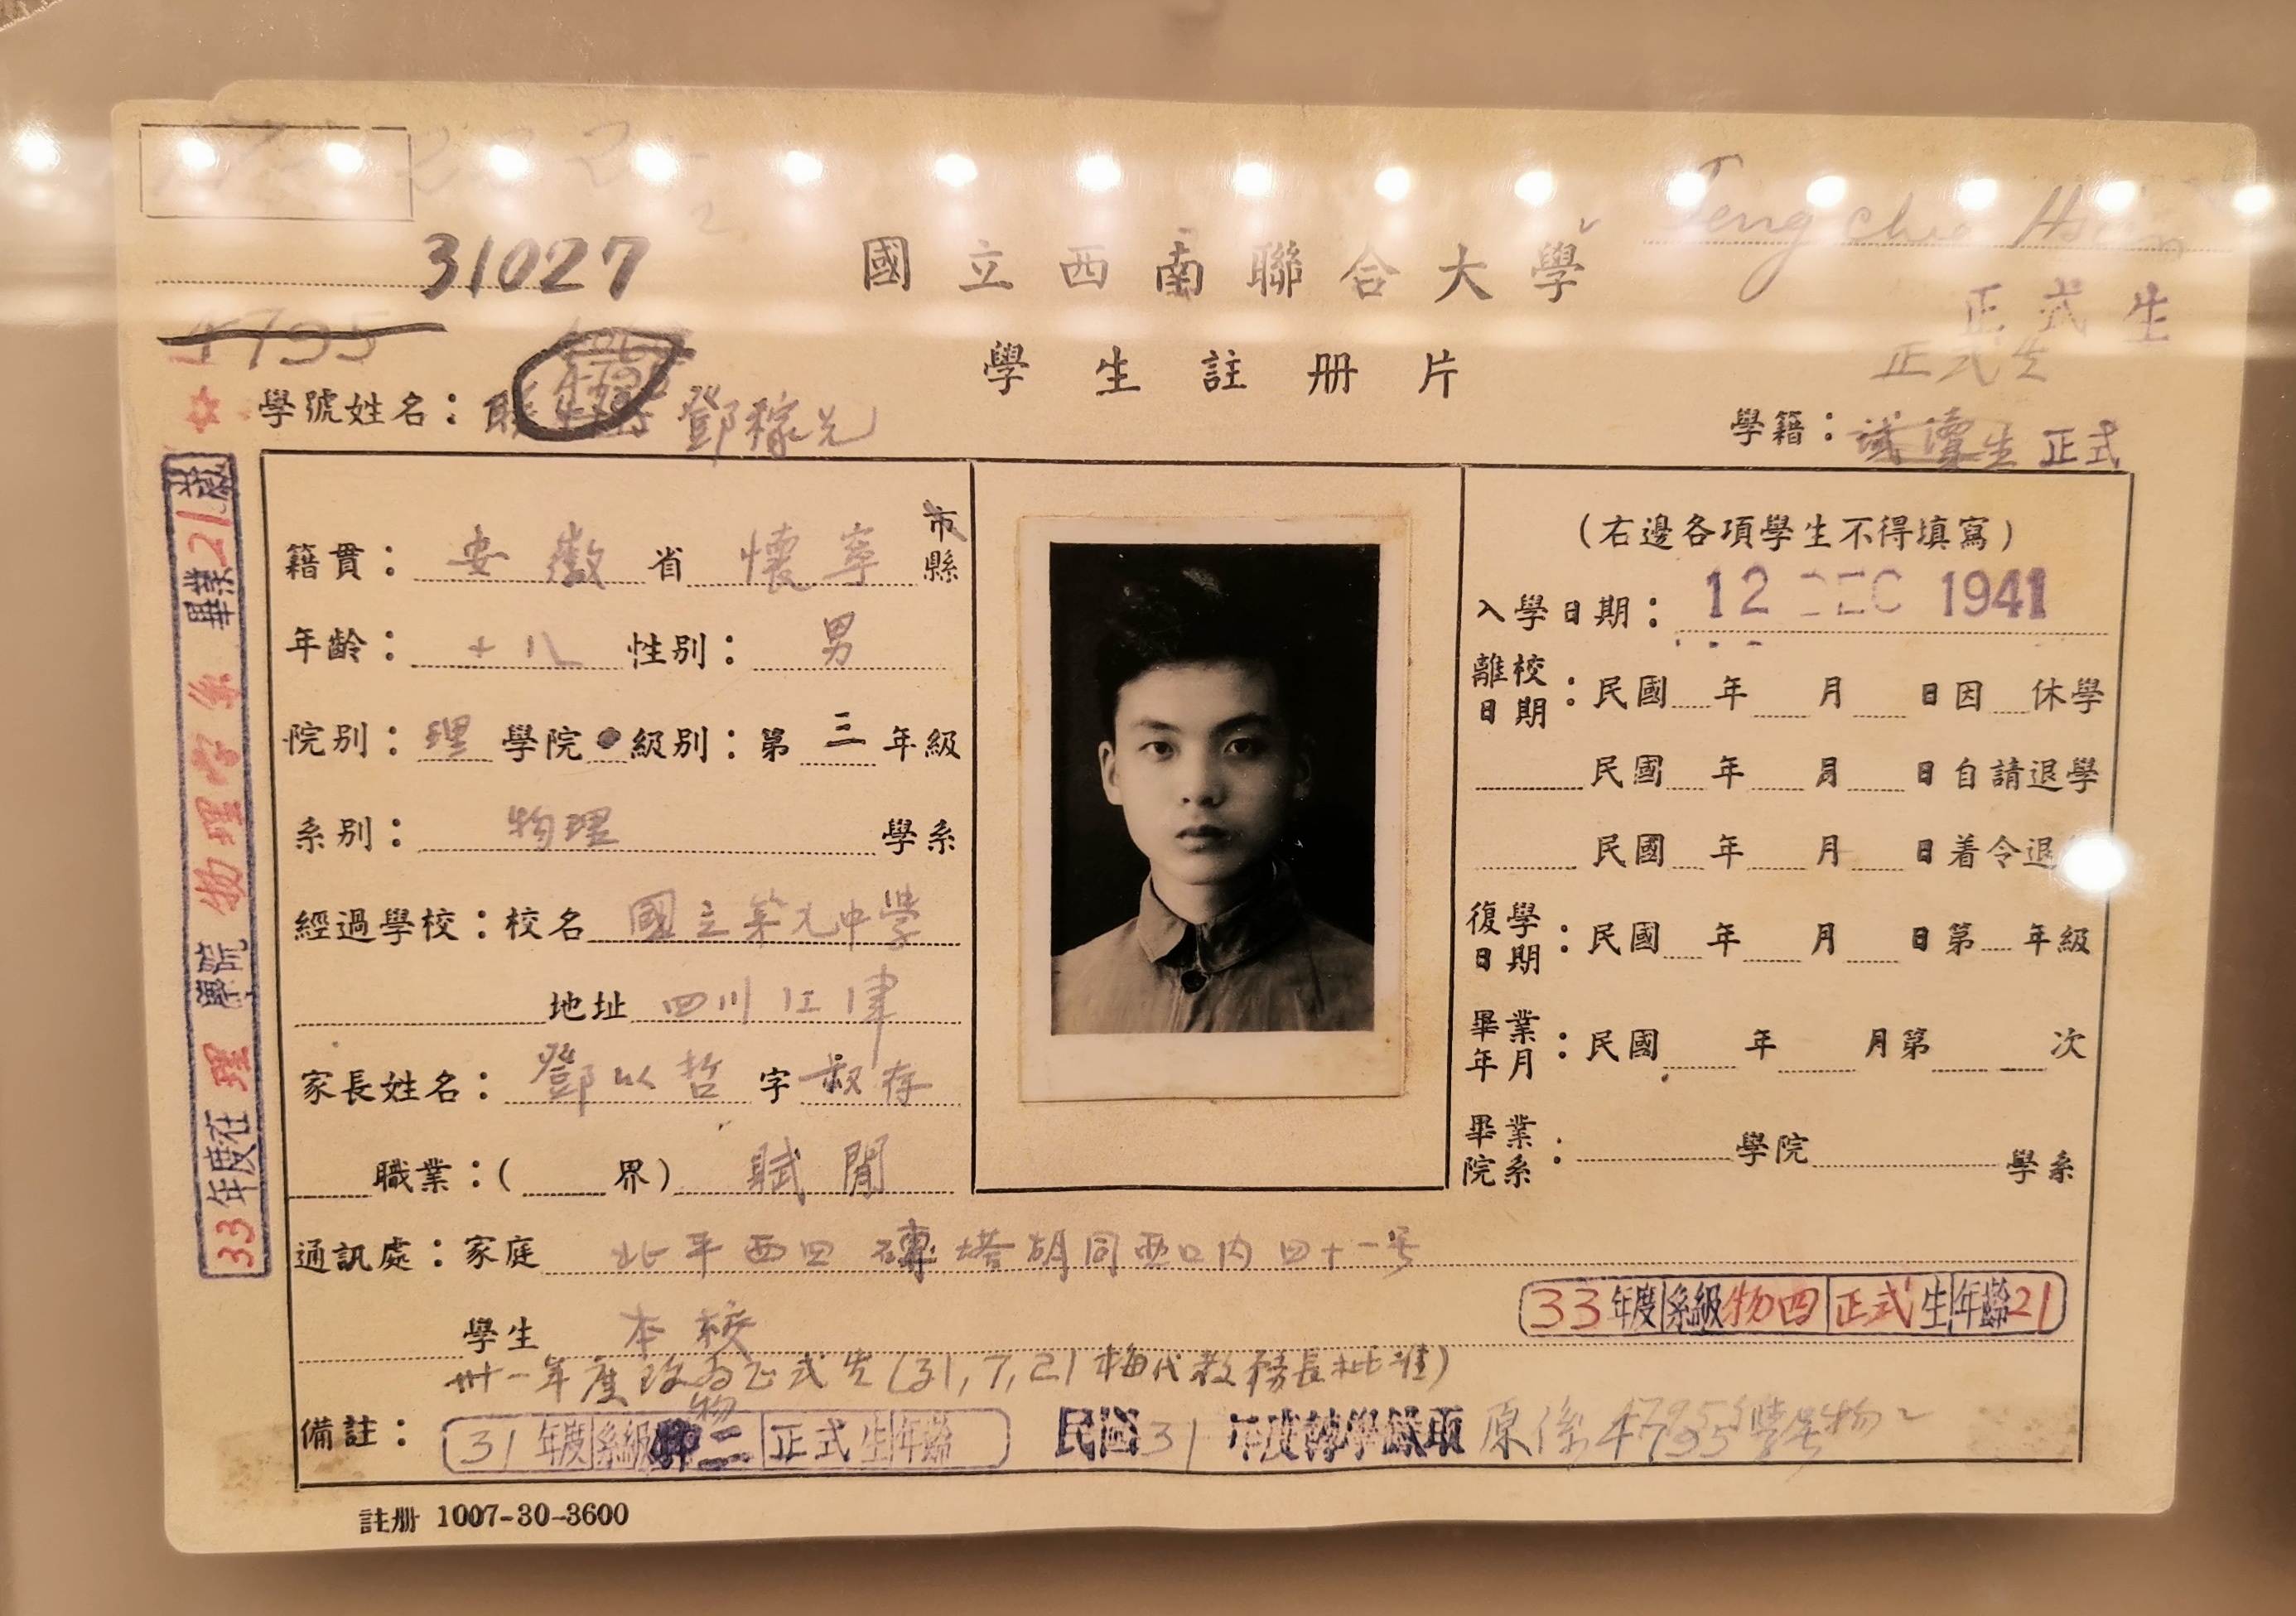 31027
國立西南聯合大學
Teng Chia Hsien
4795
學生註册片
正式生
正式生
學號姓名：聯 鄧稼先
學籍：試讀生 正式
籍貫：安徽省懷寧市縣
年齡：十八 性別：男
院別：理學院 級別：第三年級
系別：物理學系
經過學校：校名 國立第九中學
地址 四川江津
家長姓名：鄧以蟄 字 叔存
職業：(界) 賦閒
(右邊各項學生不得填寫)
入學日期：12 DEC 1941
離校日期：民國 年 月 日因 休學
民國 年 月 日自請退學
民國 年 月 日着令退
復學日期：民國 年 月 日第 年級
畢業年月：民國 年 月第 次
畢業院系： 學院 學系
通訊處：家庭 北平西四磚塔胡同西口内四十一号
學生 本校
33年度系級物四正式生年齡21
卅一年度改为正式生(31,7,21梅代教務長批准)
備註：31年度系級物二正式生年齡
民國31年度轉學錄取 原係4795學号物二
註册 1007-30-3600
33年度在理學院物理學系畢業21歲